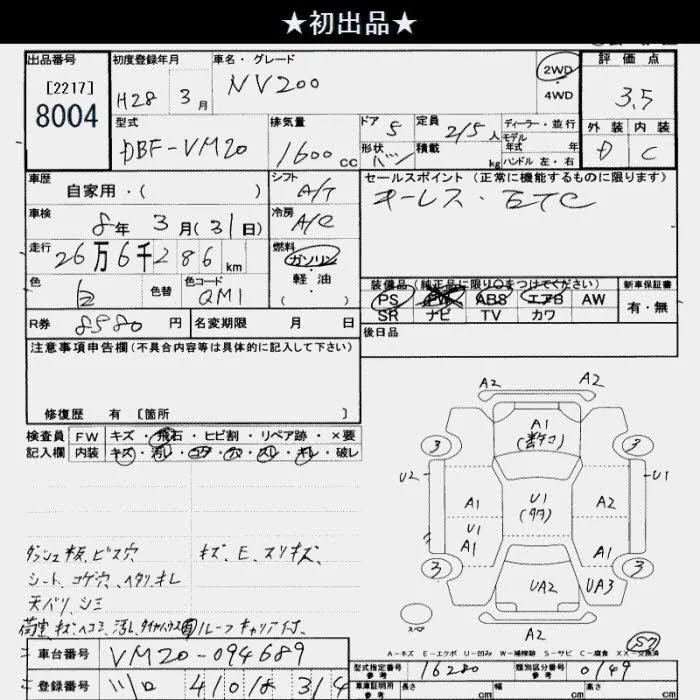 ★初出品★
出品番号 初度登録年月 車名・グレード 評価点
[2217] H28 3月 NV200 2WD・4WD 3.5
8004
型式 排気量 ドア 5 定員 2/5人 ディーラー・並行 外装 内装
DBF-VM20 1600cc 形状 バン 積載 kg モデル年式 年 ハンドル 左・右 D C
車歴 自家用・( ) シフト A/T セールスポイント(正常に機能するものに限ります)
キーレス・ETC
車検 8年 3月(31日) 冷房 A/C
走行 26万6千286km 燃料 ガソリン・軽油( )
色 白 色替 色コード QM1
装備品(純正品に限り○をつけてください) 新車保証書
PS PW ABS エアB AW 有・無
SR ナビ TV カワ
R券 8980円 名変期限 月 日 後日品
注意事項申告欄(不具合内容等は具体的に記入して下さい)
修復歴 有 [箇所 ]
検査員 FW キズ・飛石・ヒビ割・リペア跡・×要
記入欄 内装 キズ・汚レ・コゲ・穴・スレ・キレ・破レ
A2 A2
A1
3 3
U2 U1
A1 U1 A2
U1
A1 A1
3 3
UA2 UA3
A2
スペア
ダッシュ板、ビス穴 キズ、E、スリキズ、
シート、コゲ穴、ヘタリ、キレ
天バリ、シミ
荷室、キズ、ヘコミ、汚レ、タイヤハウス ルーフキャリア付、
A-キズ E-エクボ U-凹み W-補修跡 S-サビ C-腐食 XX-交換済
車台番号 VM20-094689
型式指定番号 参考 16280 類別区分番号 参考 0149
登録番号 410 314
車庫証明用 参考 長さ cm 幅 cm 高さ cm